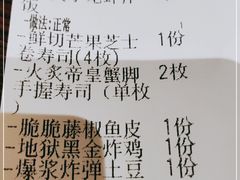 饭
-做法:正常
-鲜切芒果芝士 1份
卷寿司(4枚)
-火炙帝皇蟹脚 2枚
手握寿司(单枚
)
-脆脆藤椒鱼皮 1份
-地狱黑金炸鸡 1份
-爆浆炸弹土豆 1份